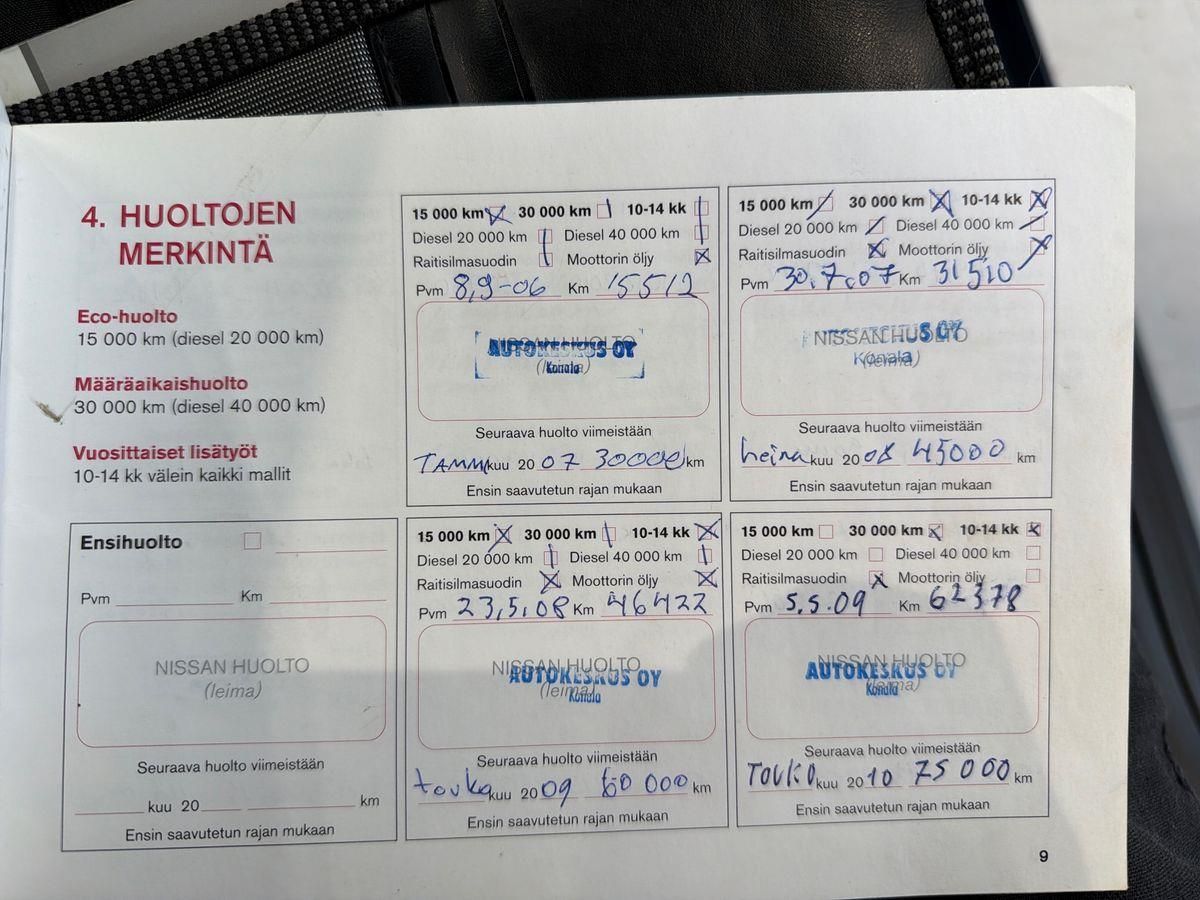 4. HUOLTOJEN
MERKINTÄ
Eco-huolto
15 000 km (diesel 20 000 km)
Määräaikaishuolto
30 000 km (diesel 40 000 km)
Vuosittaiset lisätyöt
10-14 kk välein kaikki mallit
15 000 km 30 000 km 10-14 kk
Diesel 20 000 km Diesel 40 000 km
Raitisilmasuodin Moottorin öljy
Pvm 8,9-06 Km 15512
NISSAN HUOLTO
(leima)
AUTOKESKUS OY
Konala
Seuraava huolto viimeistään
TAMMIkuu 2007 30000 km
Ensin saavutetun rajan mukaan
15 000 km 30 000 km 10-14 kk
Diesel 20 000 km Diesel 40 000 km
Raitisilmasuodin Moottorin öljy
Pvm 30.7.07 Km 31510
NISSAN HUOLTO
(leima)
Konala
Seuraava huolto viimeistään
heinäkuu 2008 45000 km
Ensin saavutetun rajan mukaan
Ensihuolto
Pvm Km
NISSAN HUOLTO
(leima)
Seuraava huolto viimeistään
kuu 20 km
Ensin saavutetun rajan mukaan
15 000 km 30 000 km 10-14 kk
Diesel 20 000 km Diesel 40 000 km
Raitisilmasuodin Moottorin öljy
Pvm 23,5,08 Km 46422
NISSAN HUOLTO
(leima)
AUTOKESKUS OY
Konala
Seuraava huolto viimeistään
toukokuu 2009 60 000 km
Ensin saavutetun rajan mukaan
15 000 km 30 000 km 10-14 kk
Diesel 20 000 km Diesel 40 000 km
Raitisilmasuodin Moottorin öljy
Pvm 5.5.09 Km 62378
NISSAN HUOLTO
(leima)
AUTOKESKUS OY
Konala
Seuraava huolto viimeistään
TOUKOkuu 2010 75 000 km
Ensin saavutetun rajan mukaan
9